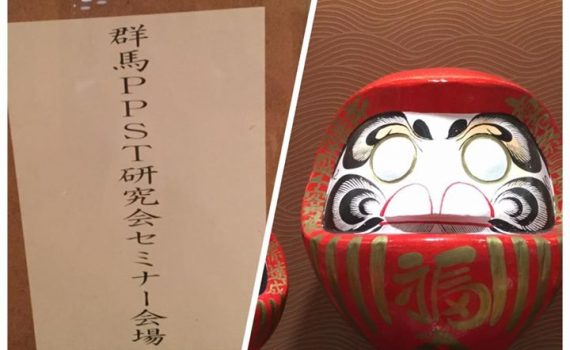 群馬PPST研究会セミナー会場
福
達成